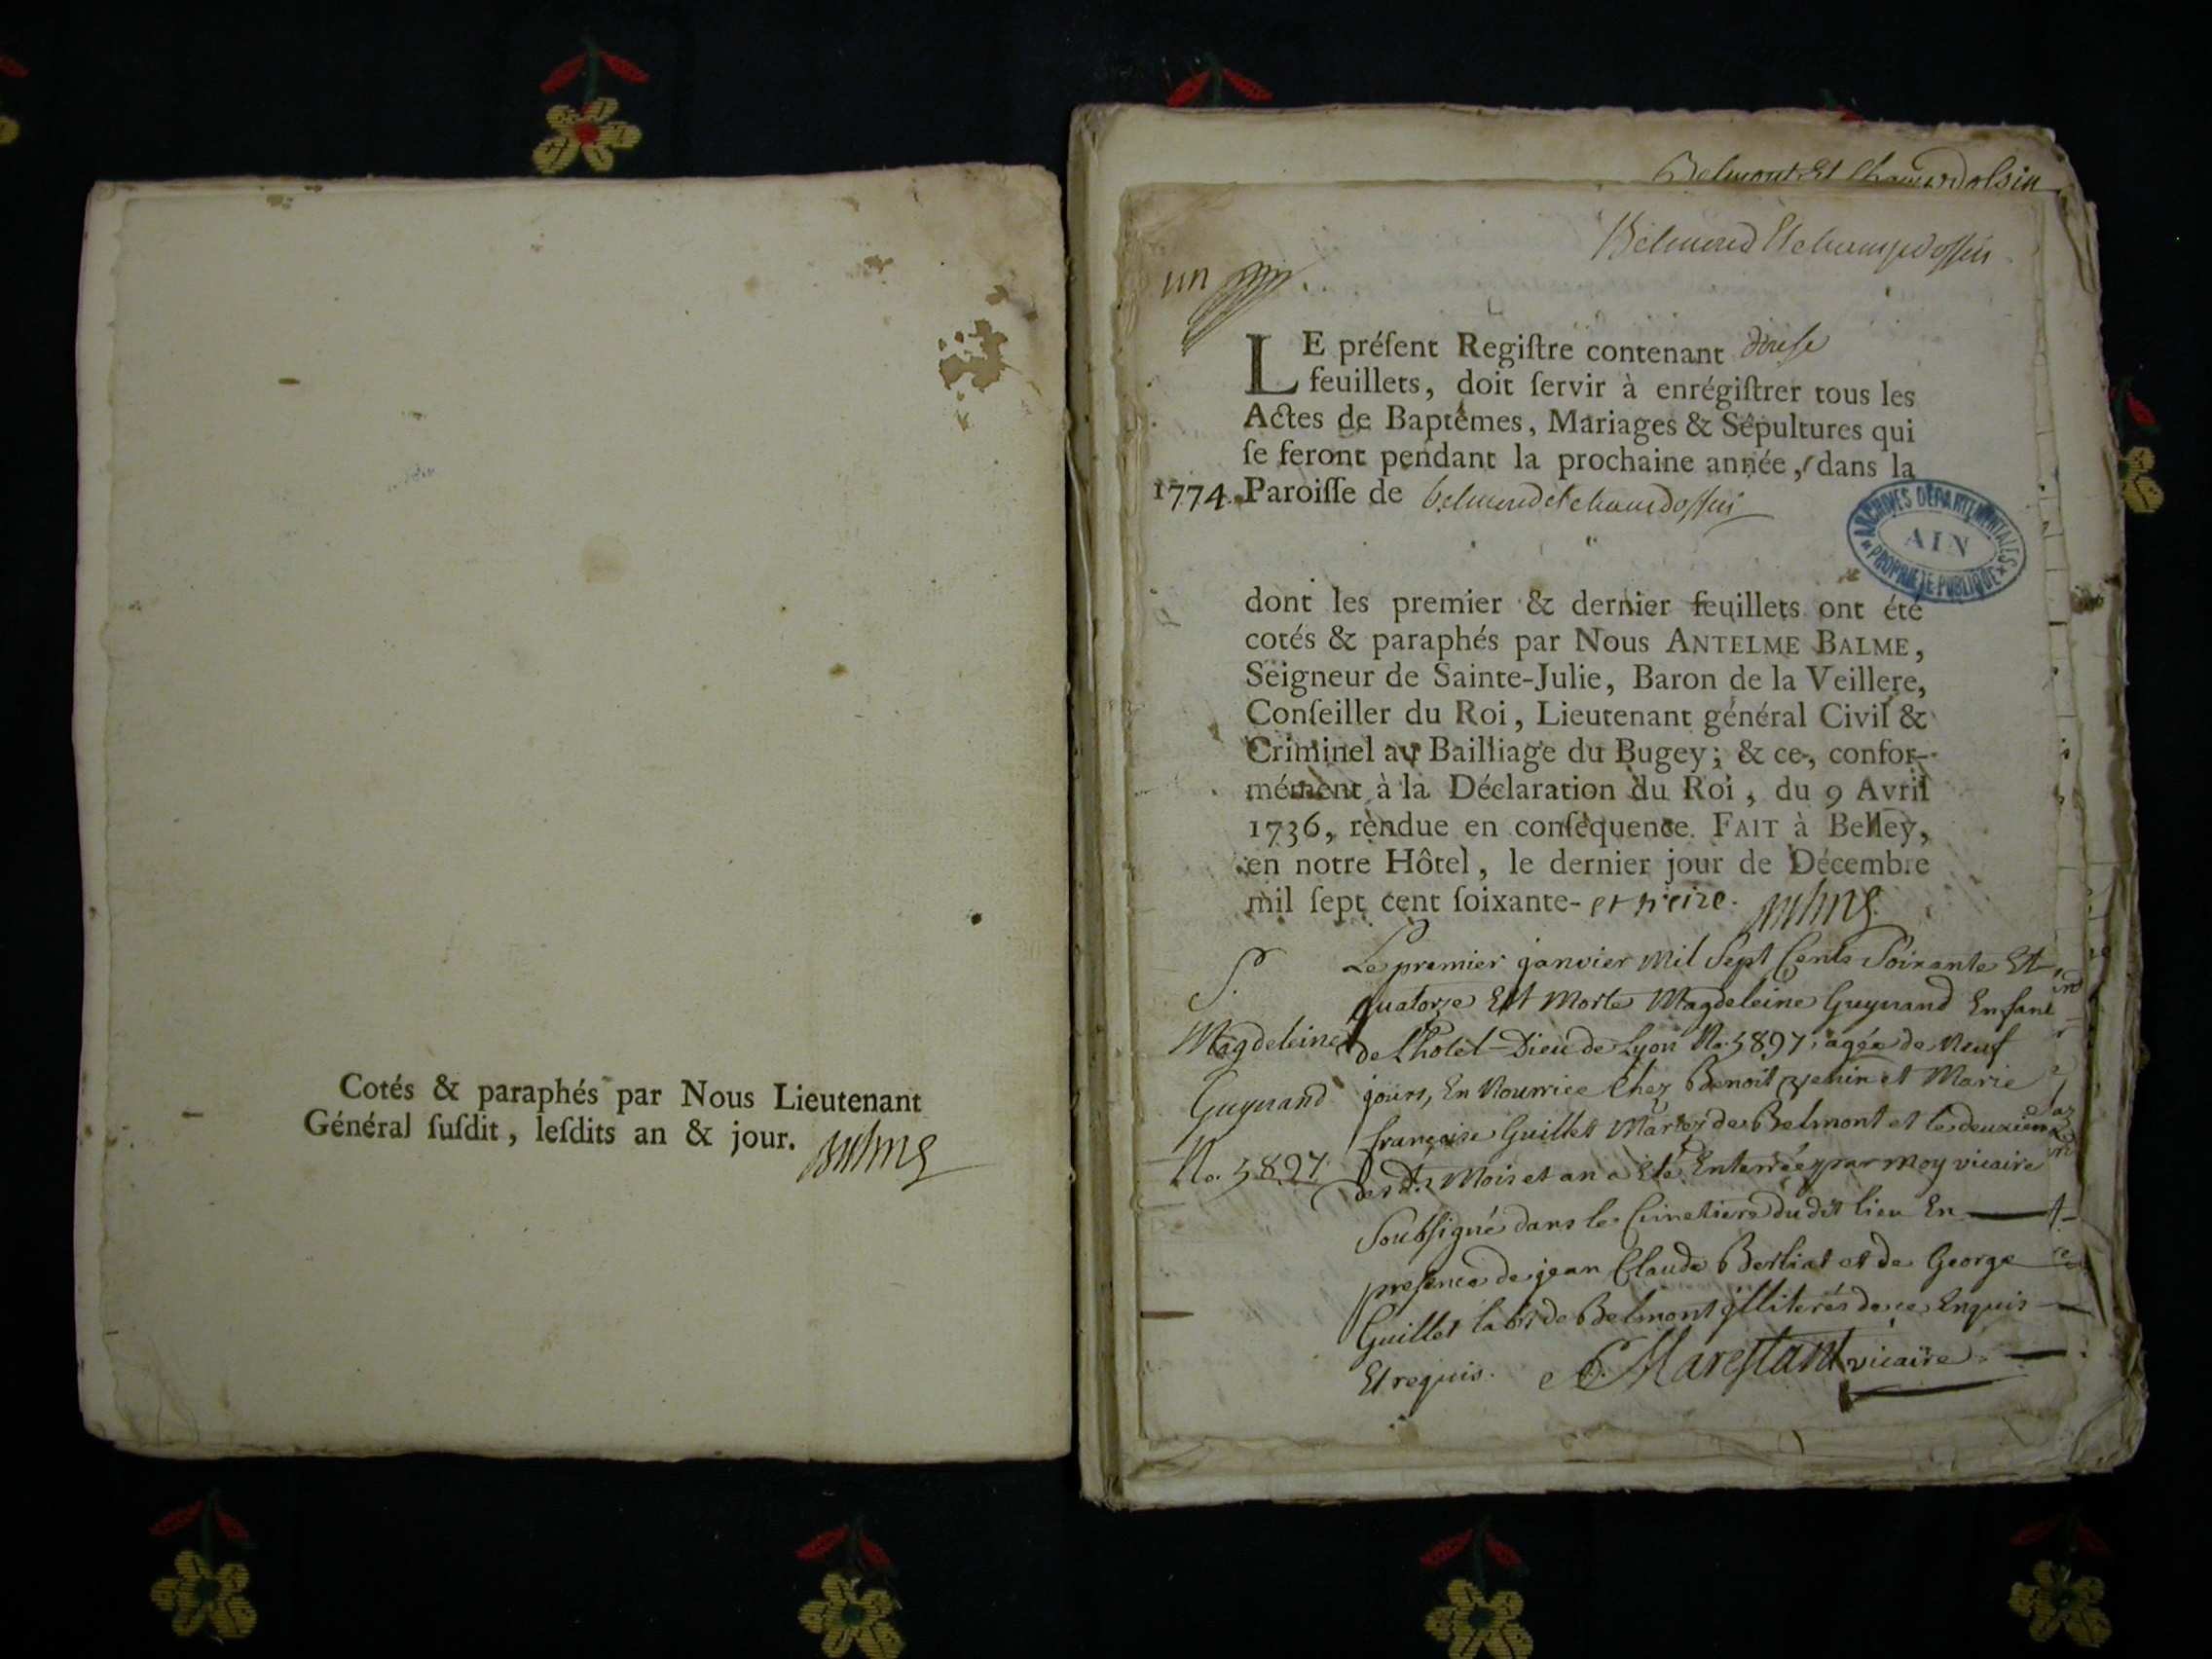 Cotés & paraphés par Nous Lieutenant
Général ſuſdit, leſdits an & jour.
Belmont Et
un
LE préſent Regiſtre contenant douse
feuillets, doit ſervir à enrégiſtrer tous les
Actes de Baptêmes, Mariages & Sépultures qui
ſe feront pendant la prochaine année, dans la
1774. Paroiſſe de
ARCHIVES DEPARTEMENTALES
AIN
PROPRIETE PUBLIQUE
dont les premier & dernier feuillets ont été
cotés & paraphés par Nous ANTELME BALME,
Seigneur de Sainte-Julie, Baron de la Veillere,
Conſeiller du Roi, Lieutenant général Civil &
Criminel au Bailliage du Bugey; & ce, confor-
mément à la Déclaration du Roi, du 9 Avril
1736, rendue en conſéquence. FAIT à Belley,
en notre Hôtel, le dernier jour de Décembre
mil ſept cent ſoixante- et treize.
S.
Magdeleine
Guynand
No. 5897
Le premier janvier mil Sept Cents Soixante Et
quatorze Est Morte Magdeleine Guynand Enfant
de L'hotel-Dieu de Lyon No. 5897, agée de Neuf
jours, En Nourrice Chez Benoit et Marie
françoise Guillet Mariez de Belmont et le deuxieme
des dts Mois et an a Eté Enterrée par moy vicaire
Soubsigné dans le Cimetiere du dit lieu En
presence de jean Claude Berliat et de George
Guillet labrs de Belmont illiterés de ce Enquis
Et requis. Marestant vicaire